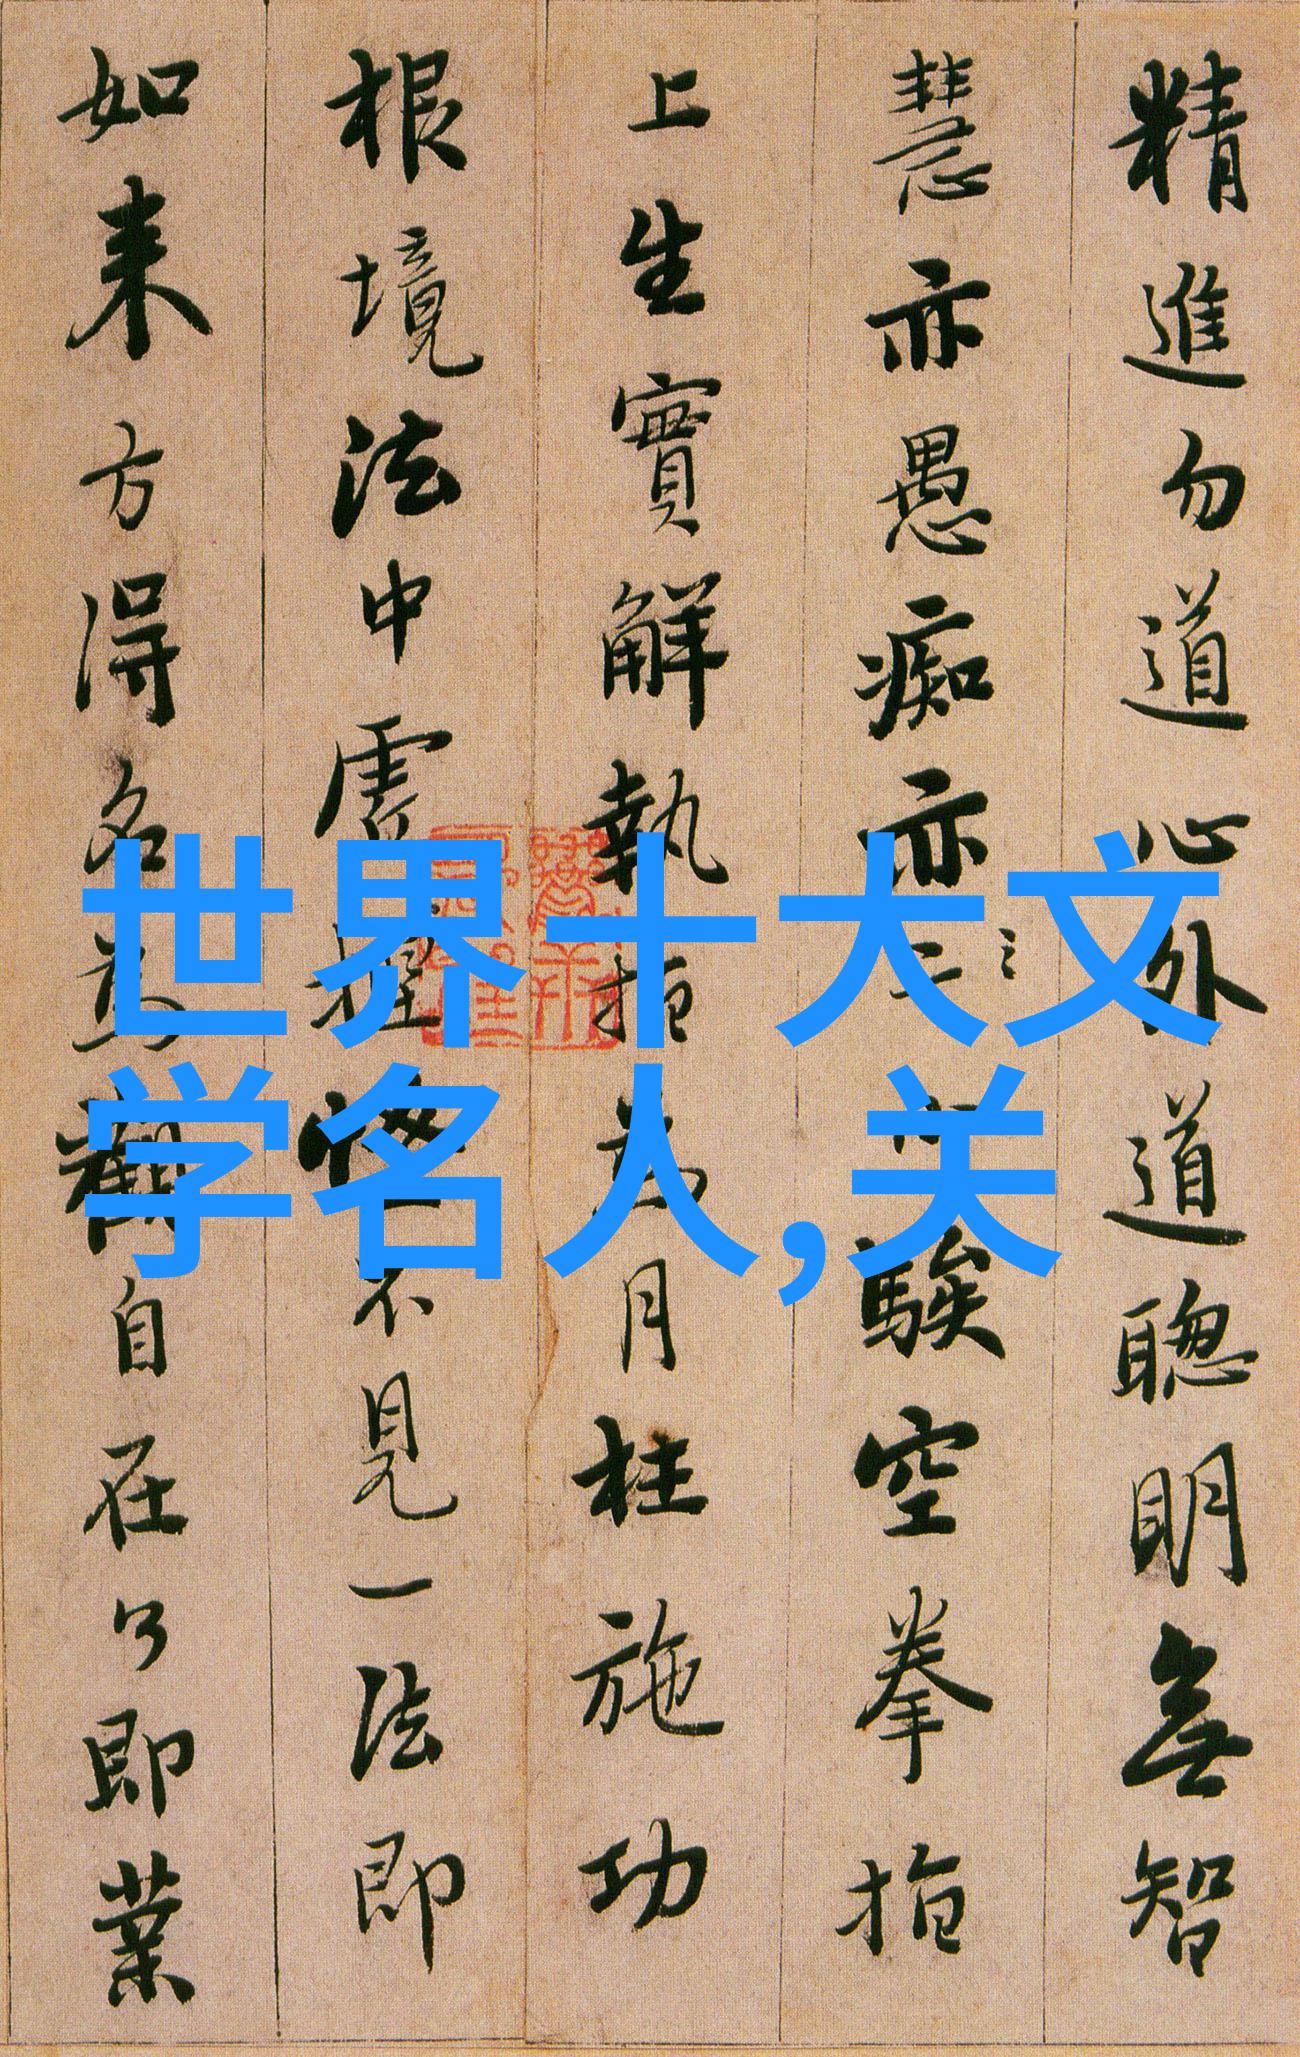 精進勿道心外道聰明無智
慧亦愚痴亦騃空拳指
上生實解執指為月枉施功
根境法中虛捏怪不見一法即
如來方得名為觀自在了即業
世界十大文
学名人,关